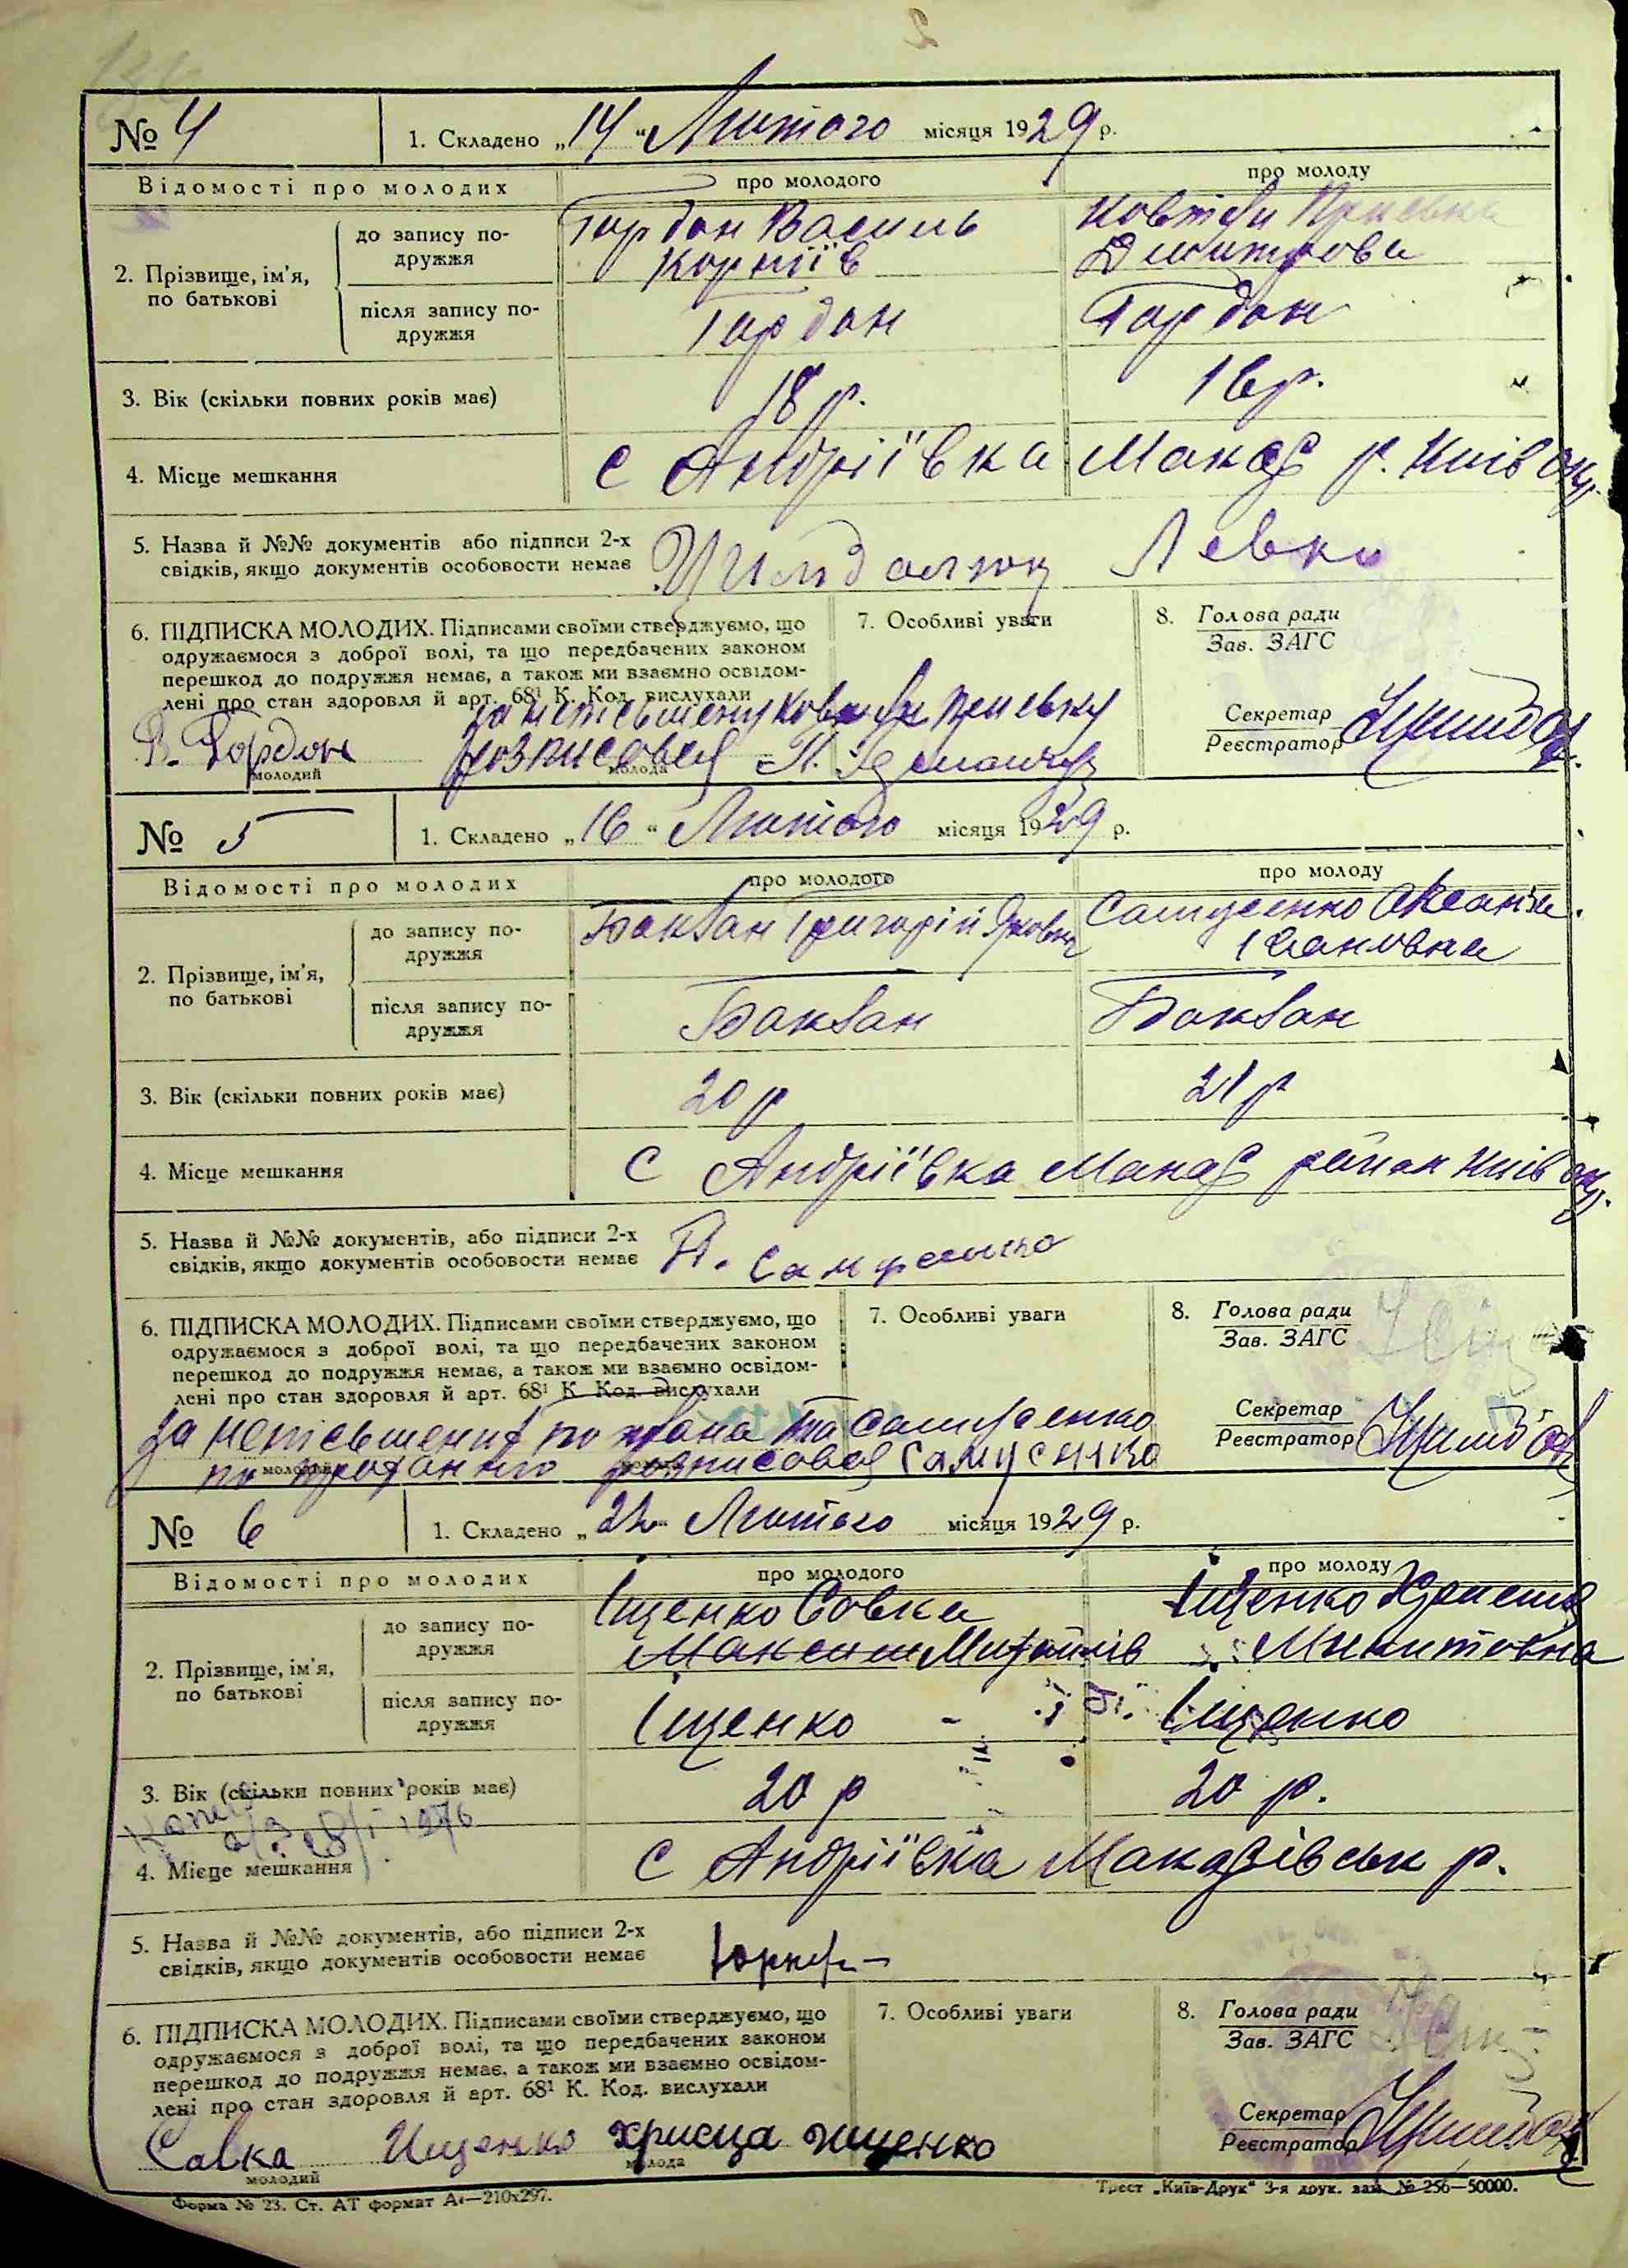 № 4
1. Складено „14“ Лютого місяця 1929 р.
Відомості про молодих
про молодого
про молоду
2. Прізвище, ім’я, по батькові
до запису подружжя
Гордон Василь
Корніїв
Дмитрова
після запису подружжя
Гордон
Гордон
3. Вік (скільки повних років має)
18 р.
16 р.
4. Місце мешкання
с Андріївка Макар р. Київ окр.
5. Назва й №№ документів або підписи 2-х
свідків, якщо документів особовости немає
Левко
6. ПІДПИСКА МОЛОДИХ. Підписами своїми стверджуємо, що
одружаємося з доброї волі, та що передбачених законом
перешкод до подружжя немає, а також ми взаємно освідом-
лені про стан здоровля й арт. 68¹ К. Код. вислухали
7. Особливі уваги
8. Голова ради
Зав. ЗАГС
Секретар
Реєстратор
В. Гордон
розписовся
молодий
молода
№ 5
1. Складено „16“ Лютого місяця 1929 р.
Відомості про молодих
про молодого
про молоду
2. Прізвище, ім’я, по батькові
до запису подружжя
Григорій Якович
Самусенко
Івановна
після запису подружжя
3. Вік (скільки повних років має)
20 р
21 р
4. Місце мешкання
с Андріївка Макар район Київ окр.
5. Назва й №№ документів, або підписи 2-х
свідків, якщо документів особовости немає
6. ПІДПИСКА МОЛОДИХ. Підписами своїми стверджуємо, що
одружаємося з доброї волі, та що передбачених законом
перешкод до подружжя немає, а також ми взаємно освідом-
лені про стан здоровля й арт. 68¹ К. Код. вислухали
7. Особливі уваги
8. Голова ради
Зав. ЗАГС
Секретар
Реєстратор
та Самусенко
розписовся Самусенко
№ 6
1. Складено „22“ Лютого місяця 1929 р.
Відомості про молодих
про молодого
про молоду
2. Прізвище, ім’я, по батькові
до запису подружжя
Іщенко Совка
Михайлів
Іщенко
Микитовна
після запису подружжя
Іщенко
Іщенко
3. Вік (скільки повних років має)
20 р
20 р.
1976
4. Місце мешкання
с Андріївка Макарівськ р.
5. Назва й №№ документів, або підписи 2-х
свідків, якщо документів особовости немає
6. ПІДПИСКА МОЛОДИХ. Підписами своїми стверджуємо, що
одружаємося з доброї волі, та що передбачених законом
перешкод до подружжя немає, а також ми взаємно освідом-
лені про стан здоровля й арт. 68¹ К. Код. вислухали
7. Особливі уваги
8. Голова ради
Зав. ЗАГС
Секретар
Реєстратор
Савка Ищенко Христя Ищенко
молодий
молода
Форма № 23. Ст. АТ формат А4—210х297.
Трест „Київ-Друк“ 3-я друк. зам. № 256—50000.